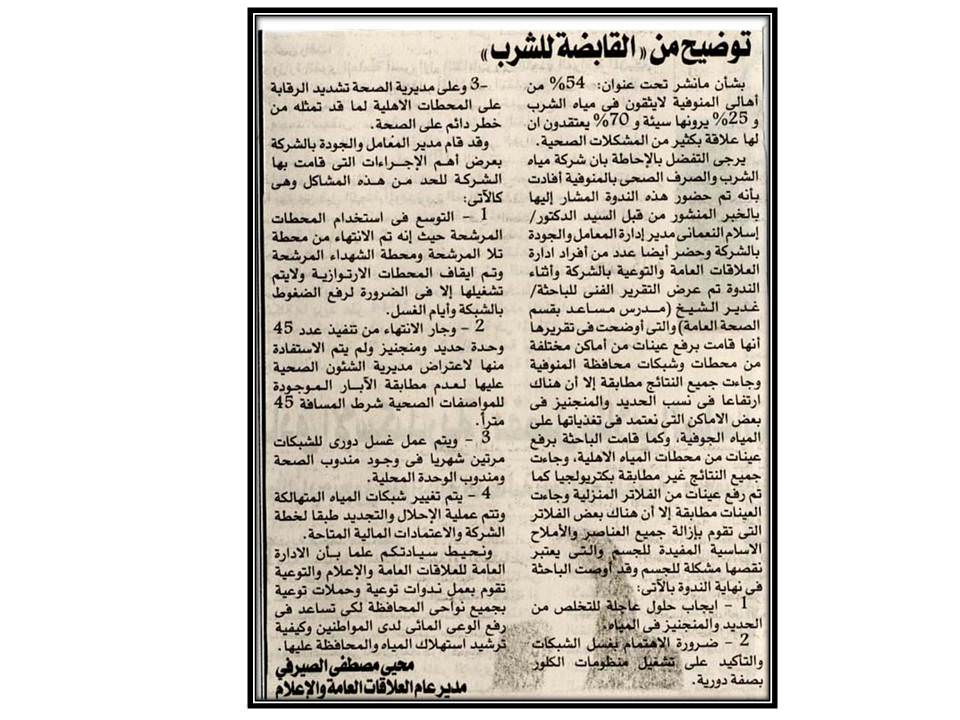 توضيح من «القابضة للشرب»
بشأن مانشر تحت عنوان: 54% من
أهالى المنوفية لايثقون فى مياه الشرب
و 25% يرونها سيئة و 70% يعتقدون ان
لها علاقة بكثير من المشكلات الصحية.
يرجى التفضل بالإحاطة بان شركة مياه
الشرب والصرف الصحى بالمنوفية أفادت
بأنه تم حضور هذه الندوة المشار إليها
بالخبر المنشور من قبل السيد الدكتور/
إسلام النعمانى مدير إدارة المعامل والجودة
بالشركة وحضر أيضا عدد من أفراد ادارة
العلاقات العامة والتوعية بالشركة وأثناء
الندوة تم عرض التقرير الفنى للباحثة/
غدير الشيخ (مدرس مساعد بقسم
الصحة العامة) والتى أوضحت فى تقريرها
أنها قامت برفع عينات من أماكن مختلفة
من محطات وشبكات محافظة المنوفية
وجاءت جميع النتائج مطابقة إلا أن هناك
ارتفاعا فى نسب الحديد والمنجنيز فى
بعض الاماكن التى نعتمد فى تغذياتها على
المياه الجوفية، وكما قامت الباحثة برفع
عينات من محطات المياه الاهلية، وجاءت
جميع النتائج غير مطابقة بكتريولجيا كما
تم رفع عينات من الفلاتر المنزلية وجاءت
العينات مطابقة إلا أن هناك بعض الفلاتر
التى تقوم بإزالة جميع العناصر والأملاح
الاساسية المفيدة للجسم والتى يعتبر
نقصها مشكلة للجسم وقد أوصت الباحثة
فى نهاية الندوة بالآتى:
1 - ايجاب حلول عاجلة للتخلص من
الحديد والمنجنيز فى المياه.
2 - ضرورة الاهتمام بغسل الشبكات
والتأكيد على تشغيل منظومات الكلور
بصفة دورية.
3- وعلى مديرية الصحة تشديد الرقابة
على المحطات الاهلية لما قد تمثله من
خطر دائم على الصحة.
وقد قام مدير المعامل والجودة بالشركة
بعرض أهم الإجراءات التى قامت بها
الشركة للحد من هذه المشاكل وهى
كالآتى:
1 - التوسع فى استخدام المحطات
المرشحة حيث إنه تم الانتهاء من محطة
تلا المرشحة ومحطة الشهداء المرشحة
وتم ايقاف المحطات الارتوازية ولايتم
تشغيلها إلا فى الضرورة لرفع الضغوط
بالشبكة وأيام الغسل.
2 - وجار الانتهاء من تنفيذ عدد 45
وحدة حديد ومنجنيز ولم يتم الاستفادة
منها لاعتراض مديرية الشئون الصحية
عليها لعدم مطابقة الآبار الموجودة
للمواصفات الصحية شرط المسافة 45
متراً.
3 - ويتم عمل غسل دورى للشبكات
مرتين شهريا فى وجود مندوب الصحة
ومندوب الوحدة المحلية.
4 - يتم تغيير شبكات المياه المتهالكة
وتتم عملية الإحلال والتجديد طبقا لخطة
الشركة والاعتمادات المالية المتاحة.
ونحيط سيادتكم علما بأن الادارة
العامة للعلاقات العامة والإعلام والتوعية
تقوم بعمل ندوات توعية وحملات توعية
بجميع نواحى المحافظة لكى تساعد فى
رفع الوعى المائى لدى المواطنين وكيفية
ترشيد استهلاك المياه والمحافظة عليها.
محيى مصطفى الصيرفي
مدير عام العلاقات العامة والإعلام